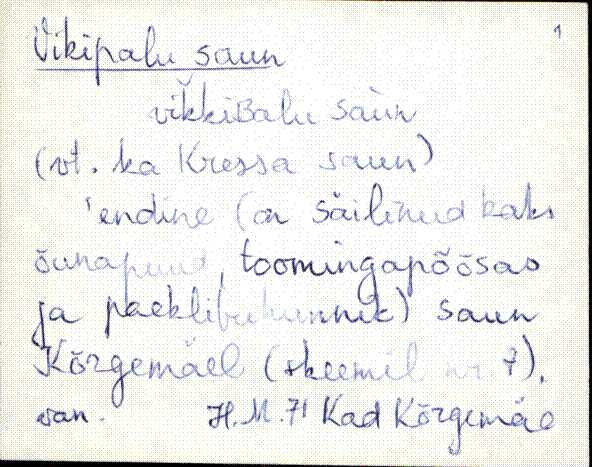 1
Vikipalu saun
vĭkkiBalu saùn
(vt. ka Kressa saun)
'endine (on säilinud kaks
õunapuud, toomingapõõsas
ja paeklibuhunnik) saun
Kõrgemäel (skeemil nr. 7).
van. H.M. 71 Kad Kõrgemäe